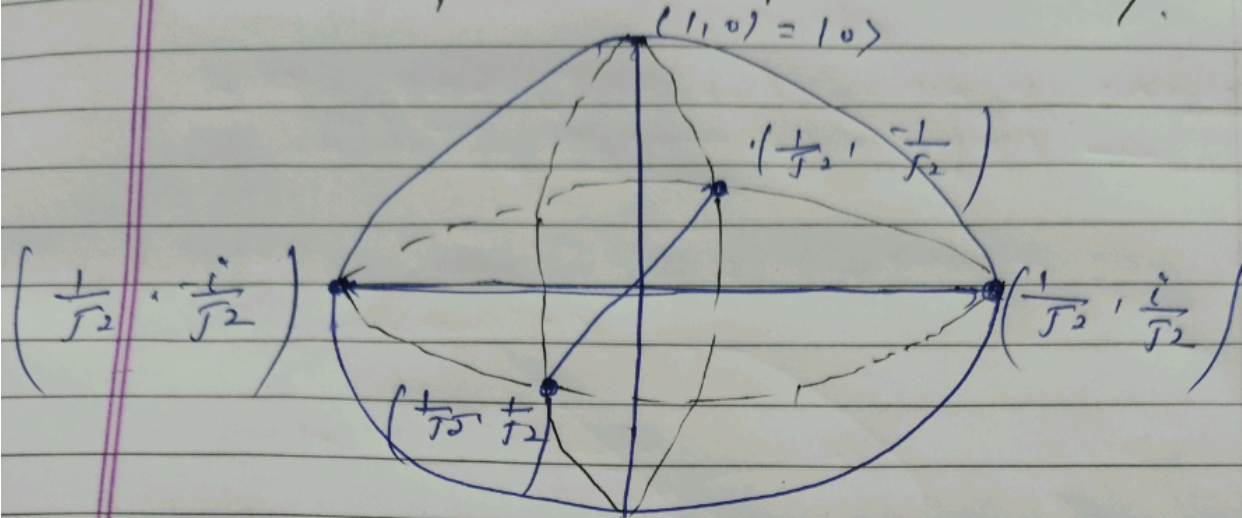 (1, 0) = |0>
(1/√2, -1/√2)
(1/√2, -i/√2)
(1/√2, i/√2)
(1/√2, 1/√2)